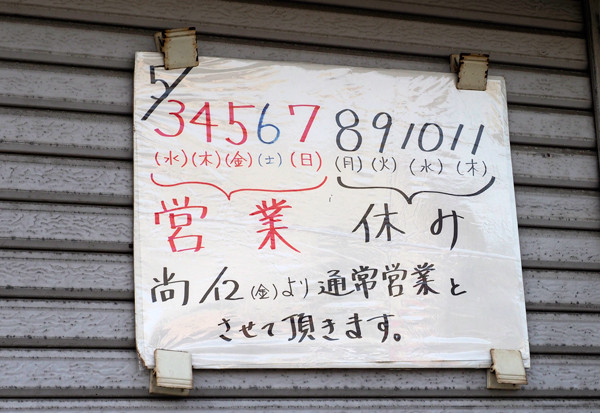 5/
3 4 5 6 7 8 9 10 11
(水)(木)(金)(土)(日)(月)(火)(水)(木)
営業 休み
尚/12(金)より通常営業と
させて頂きます。